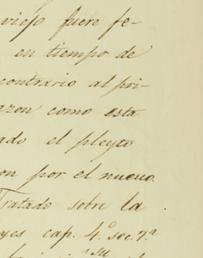 viejo fuero fe-
en tiempo de
contrario al pri-
azon como esta
ado el pleyto
on por el nuevo
Tratado sobre la
yes cap. 4.º sec. 7.ª